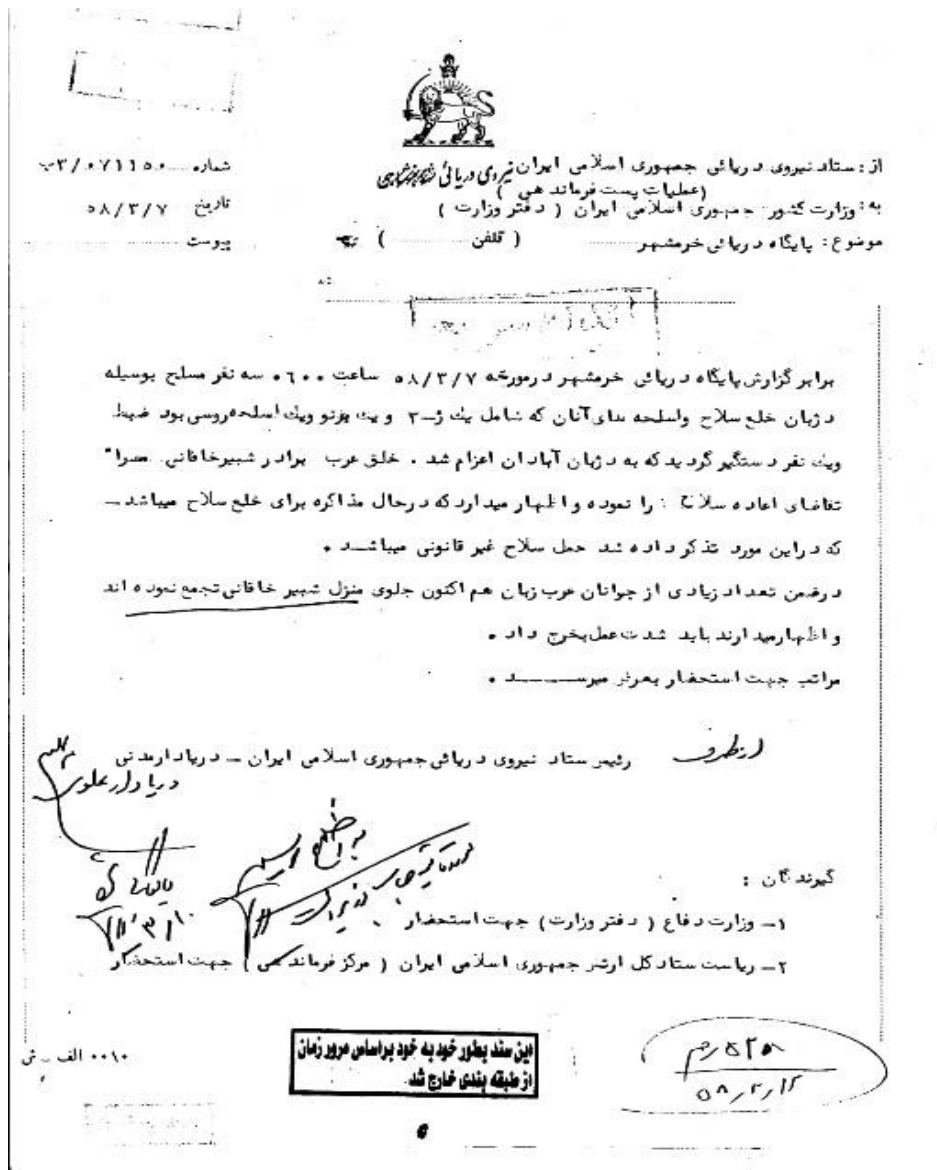 شماره ۳/۰۷۱۱۵۰
تاریخ ۵۸/۳/۷
پیوست
از : ستاد نیروی دریائی جمهوری اسلامی ایران نیروی دریائی
(عملیات پست فرماندهی )
به : وزارت کشور جمهوری اسلامی ایران ( دفتر وزارت )
موضوع : پایگاه دریائی خرمشهر ( تلفن )
برابر گزارش پایگاه دریائی خرمشهر درمورخه ۵۸/۳/۷ ساعت ۰۶۰۰ سه نفر مسلح بوسیله
دژبان خلع سلاح واسلحه های آنان که شامل یک ژ-۳ و یک برنو ویک اسلحه روسی بود ضبط
ویک نفر دستگیر گردید که به دژبان آبادان اعزام شد . خلق عرب برادر شبیرخاقانی مصرا"
تقاضای اعاده سلاح را نموده و اظهار میدارد که درحال مذاکره برای خلع سلاح میباشد ـ
که دراین مورد تذکر داده شد حمل سلاح غیر قانونی میباشد .
درضمن تعداد زیادی از جوانان عرب زبان هم اکنون جلوی منزل شبیر خاقانی تجمع نموده اند
و اظهارمیدارند باید شدت عمل بخرج داد .
مراتب جهت استحضار بعرض میرسد .
از طرف رئیس ستاد نیروی دریائی جمهوری اسلامی ایران ـ دریادار مدنی
دریادار علوی
گیرندگان :
۱ـ وزارت دفاع ( دفتر وزارت) جهت استحضار
۲ـ ریاست ستاد کل ارتش جمهوری اسلامی ایران ( مرکز فرماندهی ) جهت استحضار
بایگانی
این سند بطور خود به خود براساس مرور زمان
از طبقه بندی خارج شد
۰۰۱۰ الف ـ ش